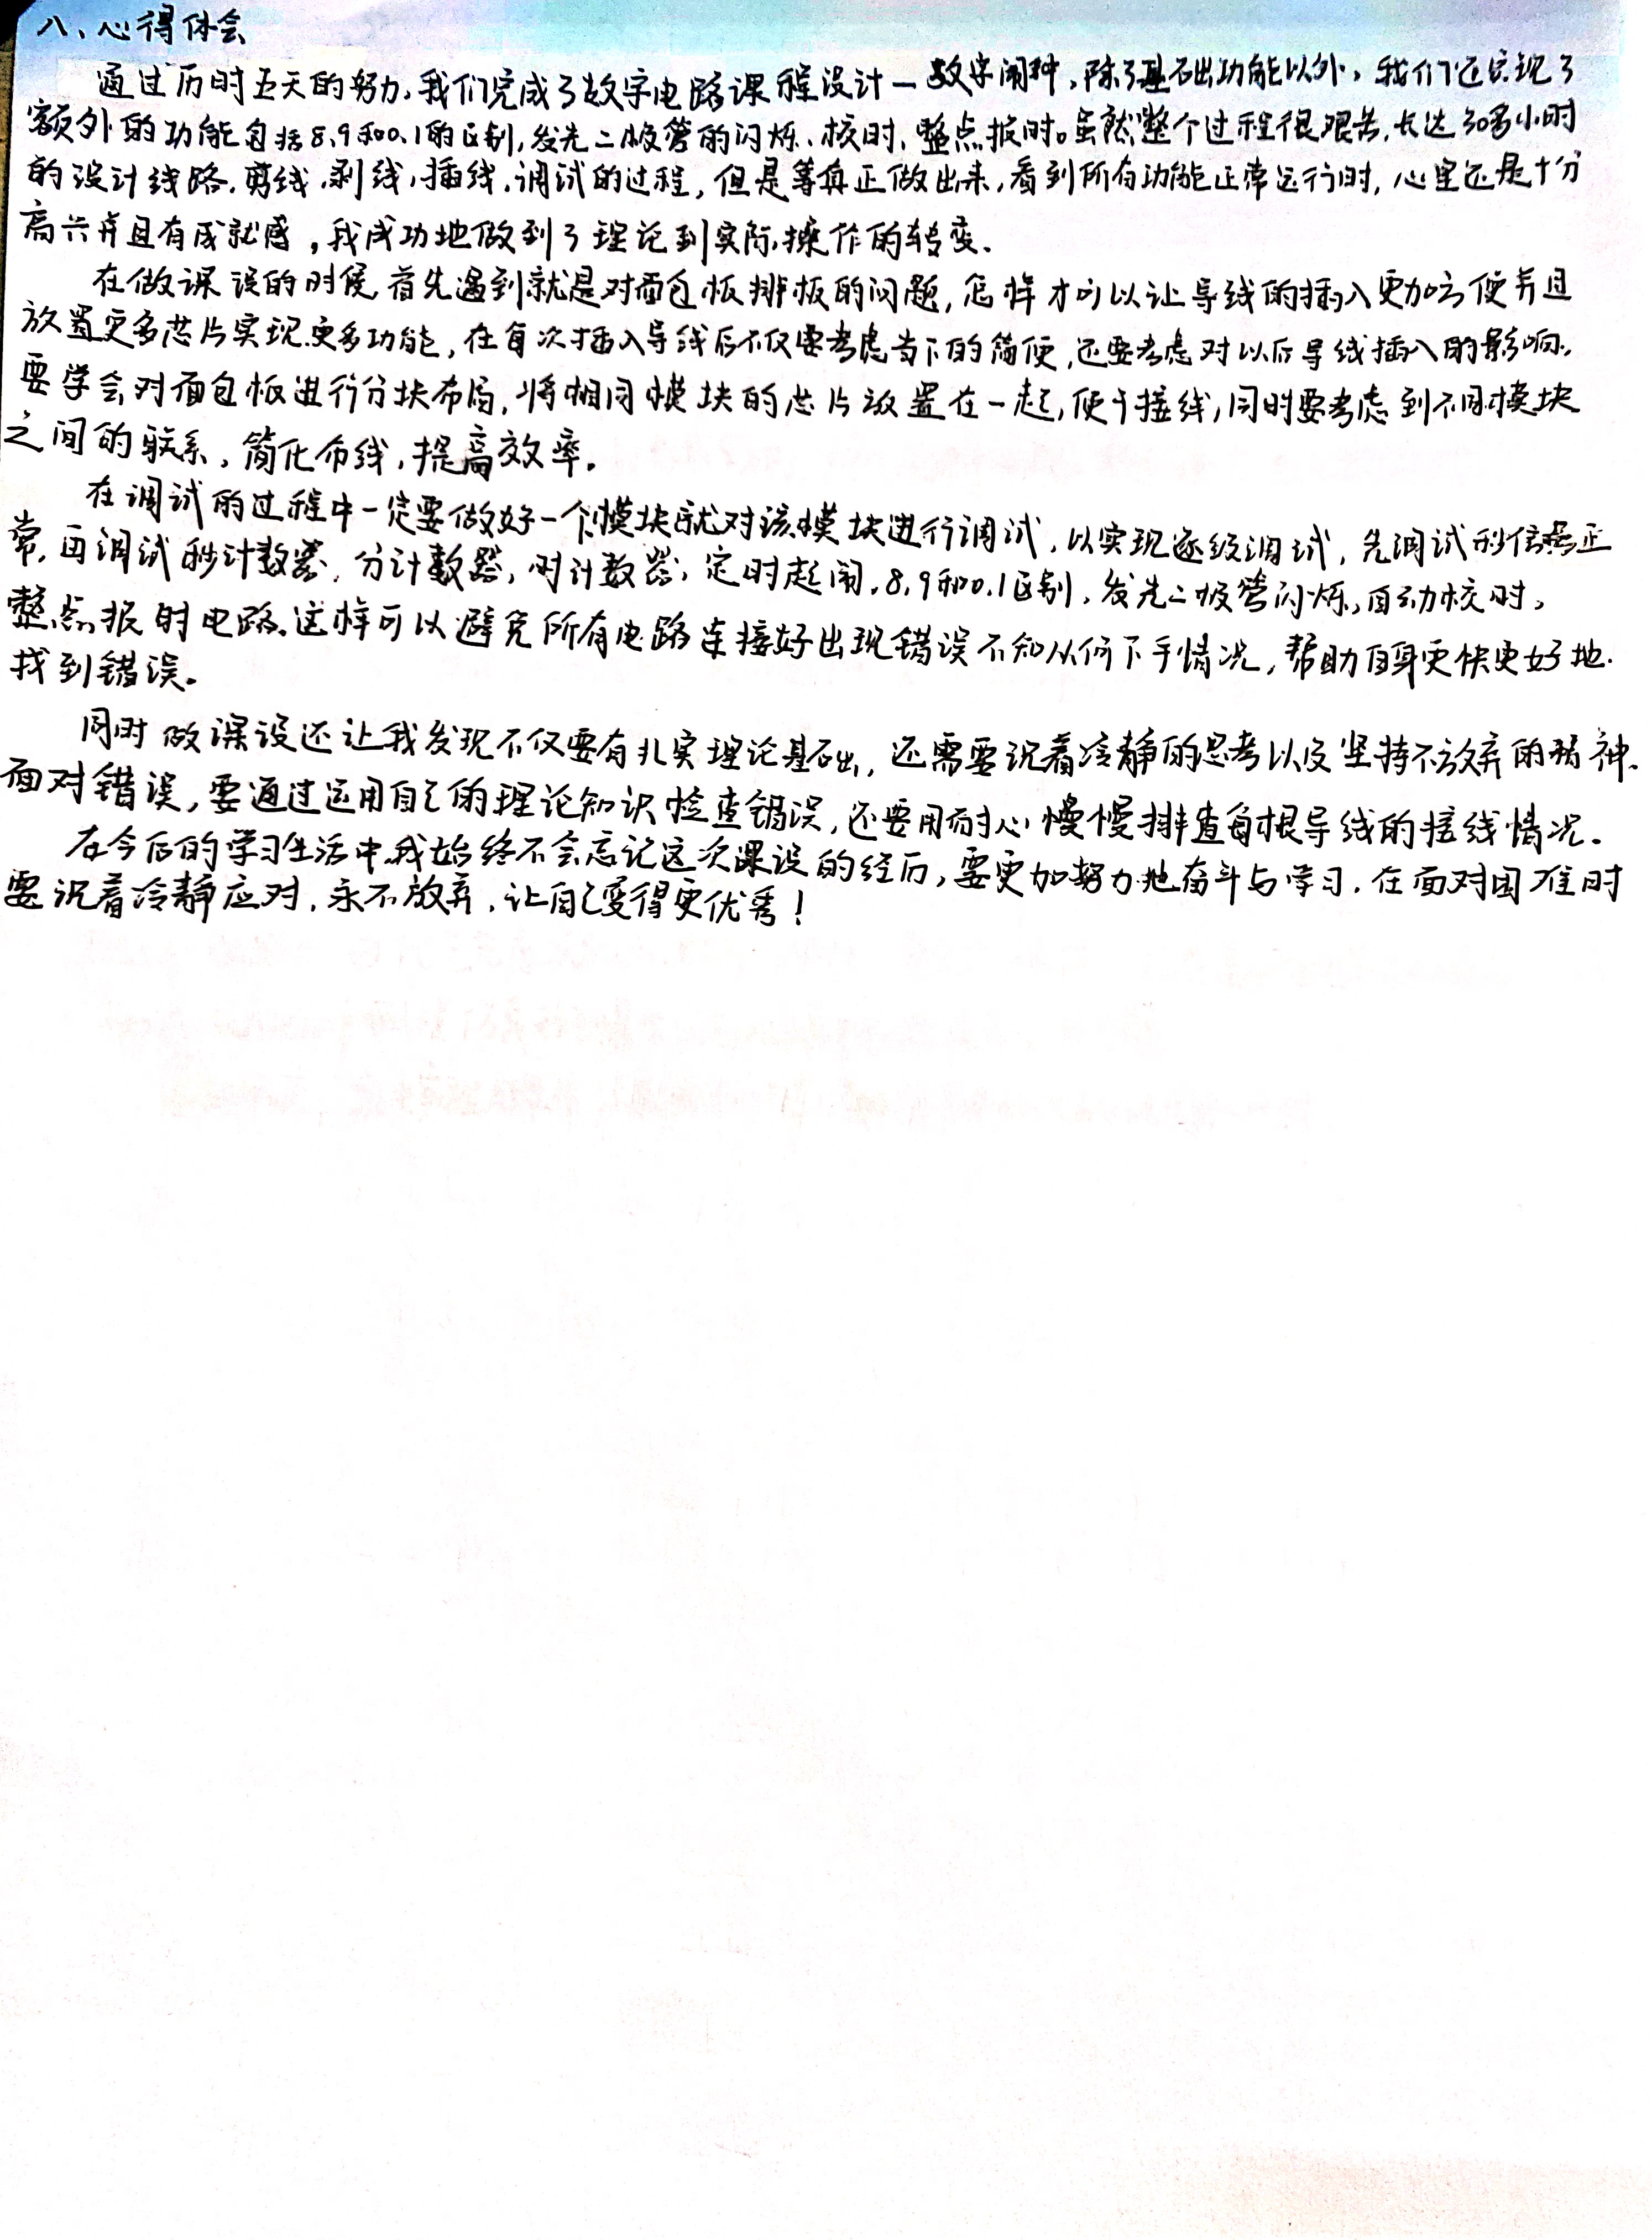 八、心得体会
通过历时五天的努力,我们完成了数字电路课程设计—数字闹钟,除了基础功能以外,我们还实现了
额外的功能包括8、9和0、1的区别,发光二极管的闪烁、校时、整点报时。虽然整个过程很艰苦,长达30多小时
的设计线路、剪线、剥线、插线、调试的过程,但是等真正做出来,看到所有功能正常运行时,心里还是十分
高兴并且有成就感,我成功地做到了理论到实际操作的转变、
在做课设的时候首先遇到就是对面包板排板的问题,怎样才可以让导线的插入更加方便并且
放置更多芯片实现更多功能,在每次插入导线后不仅要考虑当下的简便,还要考虑对以后导线插入的影响。
要学会对面包板进行分块布局,将相同模块的芯片放置在一起,便于接线,同时要考虑到不同模块
之间的联系,简化布线,提高效率。
在调试的过程中一定要做好一个模块就对该模块进行调试,以实现逐级调试,先调试秒信号正
常,再调试秒计数器,分计数器,时计数器,定时起闹,8、9和0、1区别,发光二极管闪烁,自动校时,
整点报时电路。这样可以避免所有电路连接好出现错误不知从何下手情况,帮助自身更快更好地
找到错误。
同时做课设还让我发现不仅要有扎实理论基础,还需要沉着冷静的思考以及坚持不放弃的精神.
面对错误,要通过运用自己的理论知识检查错误,还要用耐心慢慢排查每根导线的接线情况。
在今后的学习生活中我始终不会忘记这次课设的经历,要更加努力地奋斗与学习,在面对困难时
要沉着冷静应对,永不放弃,让自己变得更优秀!